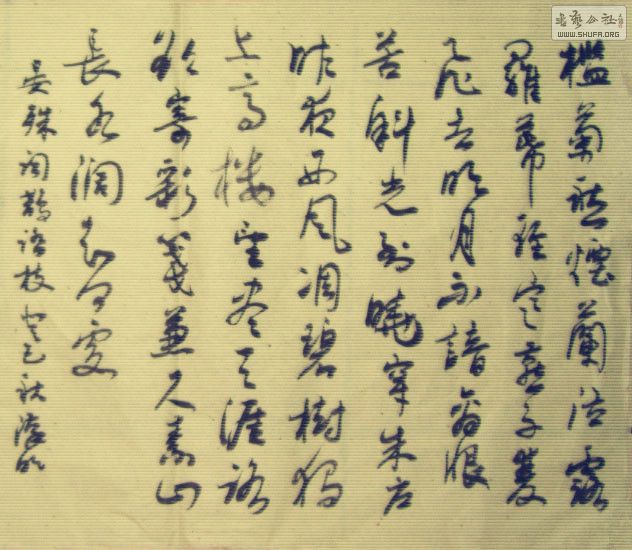 檻菊愁煙蘭泣露
羅幕輕寒燕子雙
飛去明月不諳離恨
苦斜光到曉穿朱戶
昨夜西風凋碧樹獨
上高樓望盡天涯路
欲寄彩箋兼尺素山
長水闊知何處
晏殊詞鵲踏枝 秋
书艺公社
WWW.SHUFA.ORG